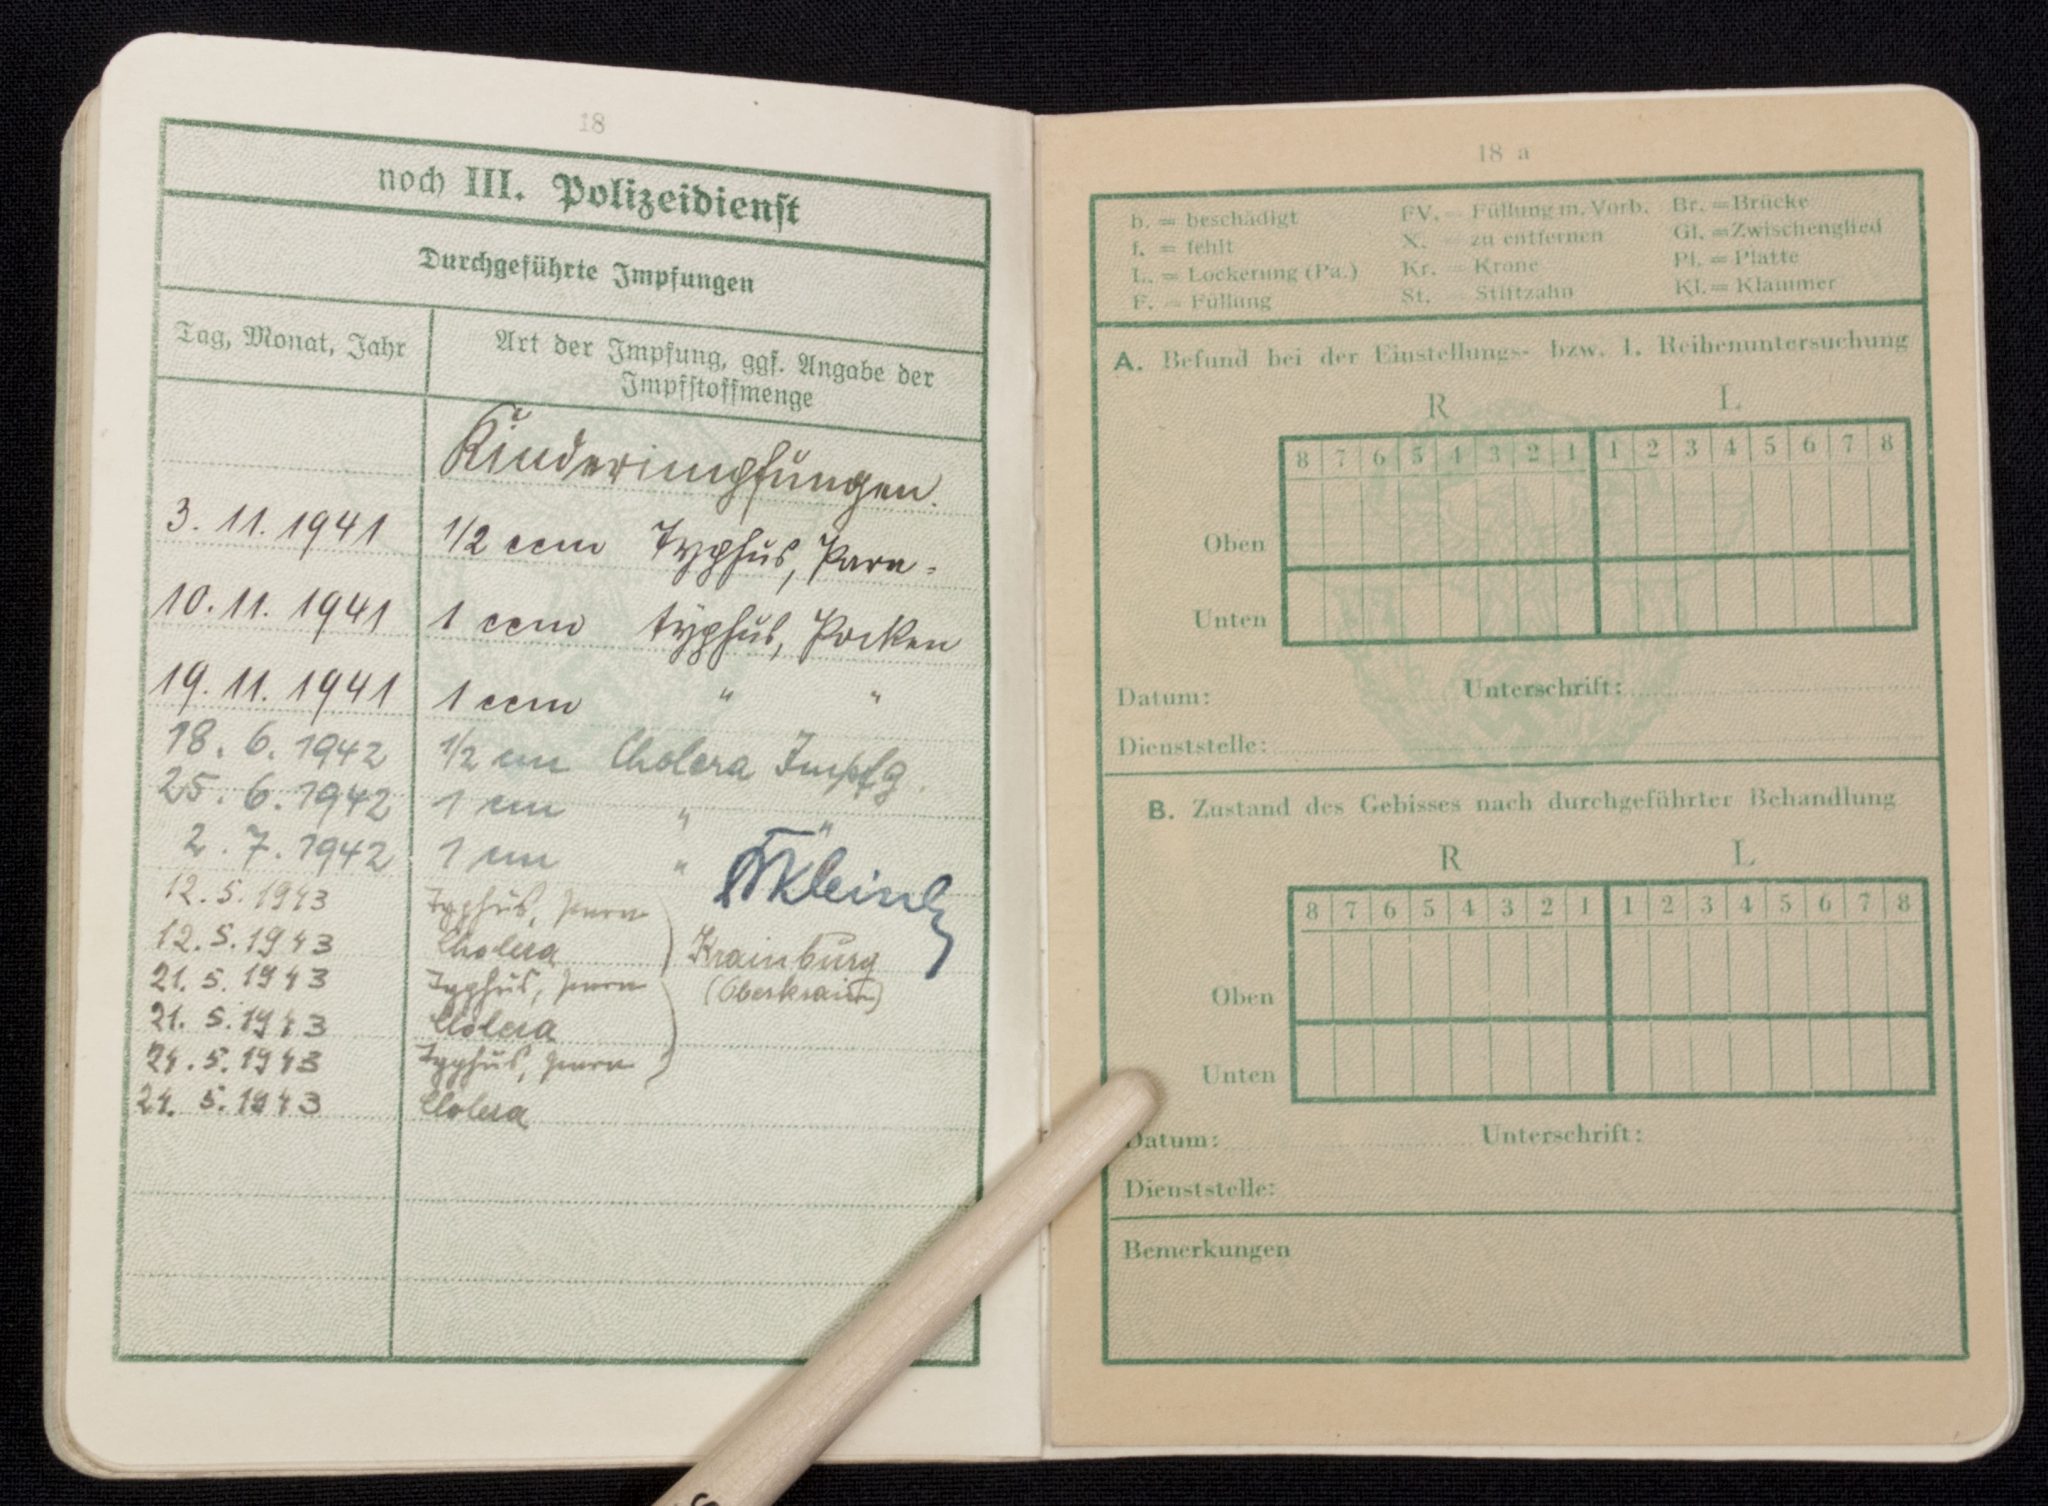 18
noch III. Polizeidienst
Durchgeführte Impfungen
Tag, Monat, Jahr
Art der Impfung, ggf. Angabe der
Impfstoffmenge
Kinderimpfungen.
3. 11. 1941 1/2 ccm Typhus, Para=
10. 11. 1941 1 ccm typhus, Pocken
19. 11. 1941 1 ccm " "
18. 6. 1942 1/2 cm Cholera Impfg.
25. 6. 1942 1 cm " "
2. 7. 1942 1 cm "
12. 5. 1943 Typhus, para
12. 5. 1943 Cholera Krainburg
21. 5. 1943 Typhus, para (Oberkrain)
21. 5. 1943 Cholera
24. 5. 1943 Typhus, para
24. 5. 1943 Cholera
18 a
b. = beschädigt FV. = Füllung m. Vorb. Br. = Brücke
f. = fehlt X. = zu entfernen Gl. = Zwischenglied
L. = Lockerung (Pa.) Kr. = Krone Pl. = Platte
F. = Füllung St. = Stiftzahn Kl. = Klammer
A. Befund bei der Einstellungs- bzw. 1. Reihenuntersuchung
R L
8 7 6 5 4 3 2 1 1 2 3 4 5 6 7 8
Oben
Unten
Datum: Unterschrift:
Dienststelle:
B. Zustand des Gebisses nach durchgeführter Behandlung
R L
8 7 6 5 4 3 2 1 1 2 3 4 5 6 7 8
Oben
Unten
Datum: Unterschrift:
Dienststelle:
Bemerkungen